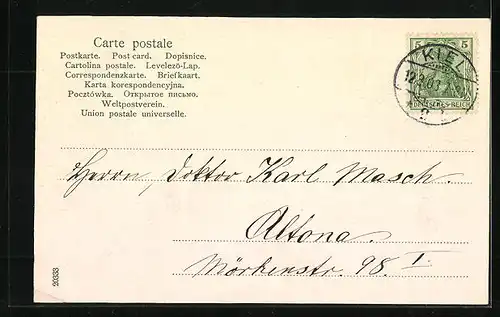 Carte postale
Postkarte. Post card. Dopisnice.
Cartolina postale. Levelező-Lap.
Correspondenzkarte. Briefkaart.
Karta korespondencyjna.
Pocztówka. Открытое письмо.
Weltpostverein.
Union postale universelle.
5 5
KIE
DEUTSCHES REICH
Herrn Doktor Karl Masch.
Altona.
Mörkenstr. 98 I.
20333